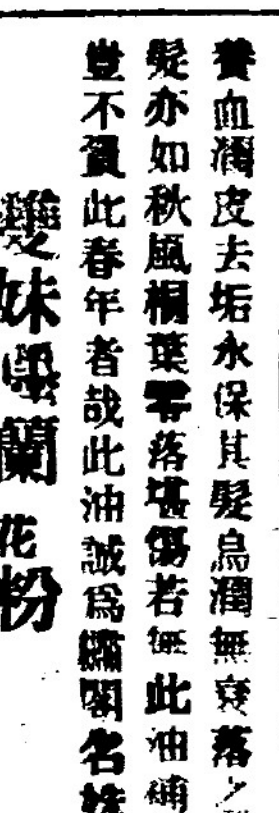 養血潤皮去垢永保其髮烏潤無衰落之
髮亦如秋風桐葉零落堪傷若無此油補
豈不負此春年者哉此油誠為繡閣名姝
雙妹嚜蘭花粉